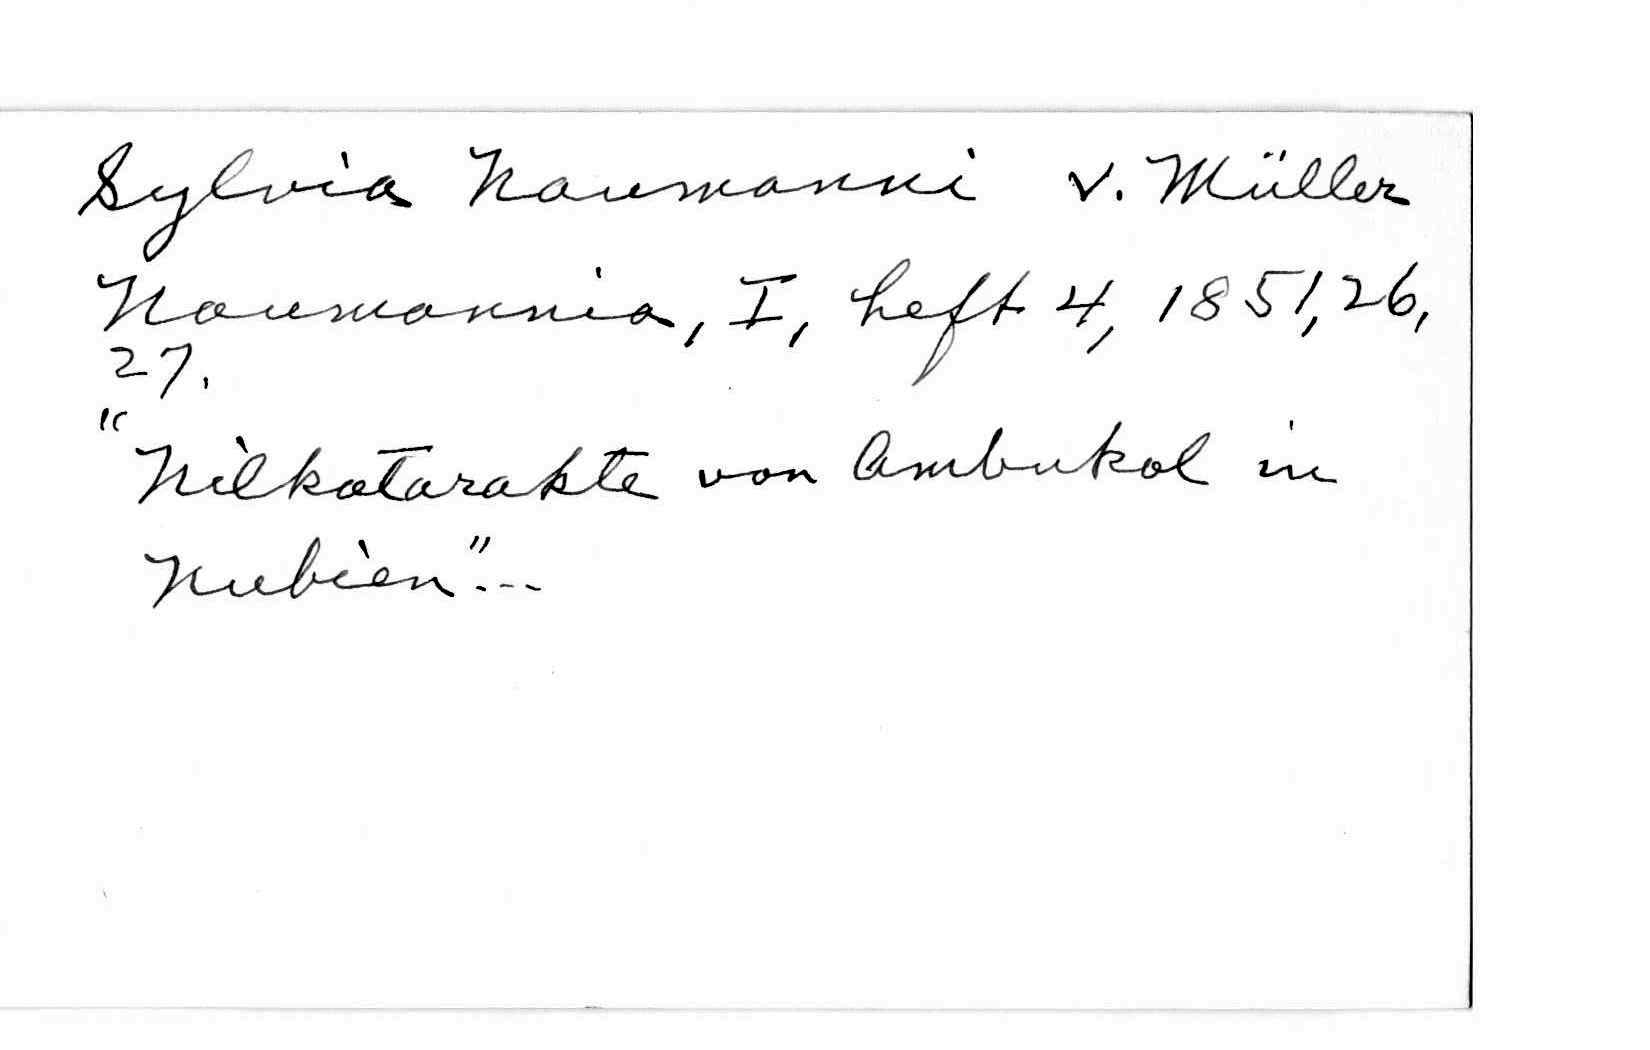 Sylvia Naumanni v. Müller
Naumannia, I, heft 4, 1851, 26,
27.
"Nilkatarakte von Ambukol in
Nubien"...